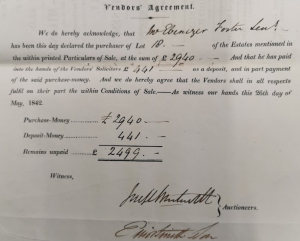 Vendors' Agreement.
We do hereby acknowledge, that Mr Ebenezer Foster Senr.
has been this day declared the purchaser of Lot 18. of the Estates mentioned in
the within printed Particulars of Sale, at the sum of £2940 And that he has paid
into the hands of the Vendors' Solicitors £441 as a deposit, and in part payment
of the said purchase-money. And we do hereby agree that the Vendors shall in all respects
fulfil on their part the within Conditions of Sale.—As witness our hands this 26th day of
May, 1842.
Purchase-Money £2940. -
Deposit-Money 441. -
Remains unpaid £ 2499. -
Witness,
Auctioneers.